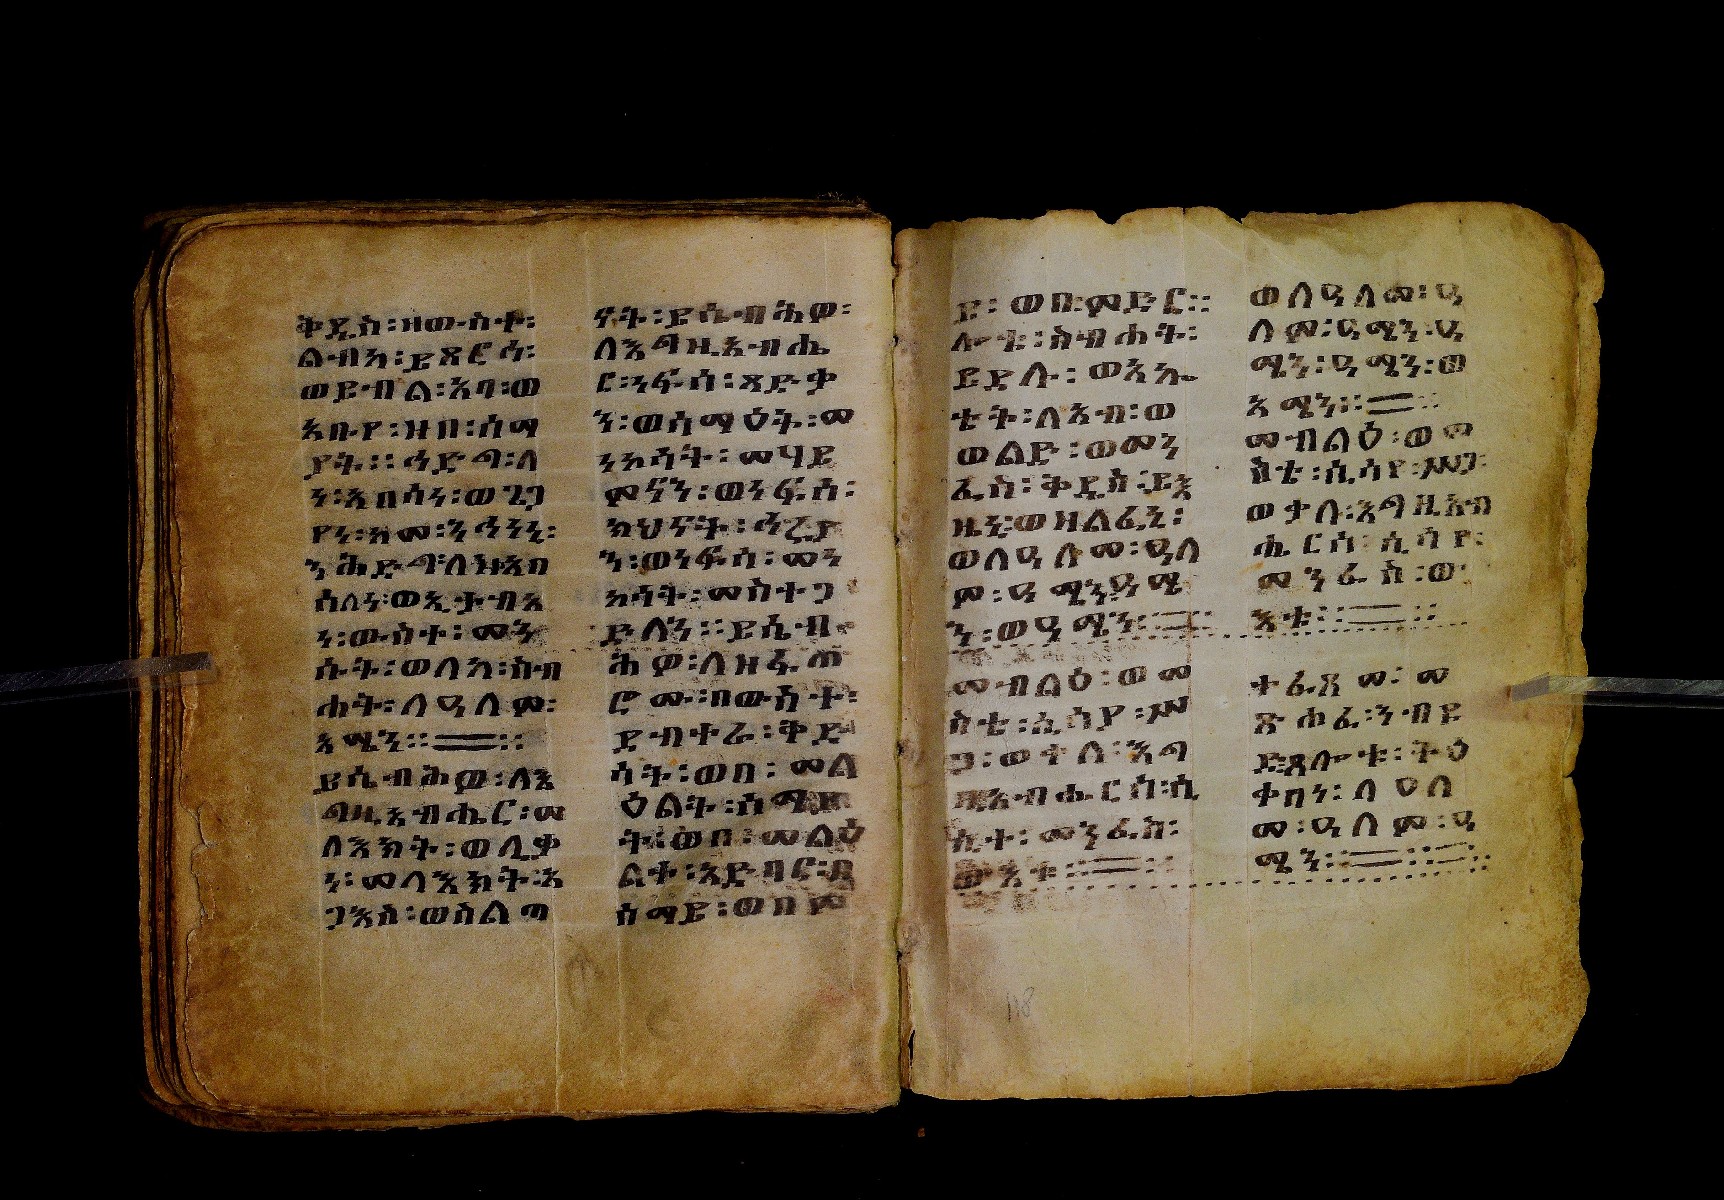 ቅዱስ፡ዘውስተ፡
ልብከ፡ይጸርሕ፡
ወይብል፡አባ፡ወ
አቡየ፡ዘበ፡ሰማ
ያት፡፡ኅድግ፡ለ
ነ፡አበሳነ፡ወጌጋ
የነ፡ከመ፡ንኅነኒ፡
ንሕድግ፡ለዘአበ
ሰለነ፡ወኢታብአ
ነ፡ውስተ፡መን
ሱት፡ወለከ፡ስብ
ሐት፡ለዓለም፡
አሜን፡፡
ይሴብሕዎ፡ለእ
ግዚአብሔር፡መ
ላእክት፡ወሊቃ
ነ፡መላእክት፡አ
ጋእስ፡ወስልጣ
ናት፡ይሴብሕዎ፡
ለእግዚአብሔ
ር፡ነፍሰ፡ጻድቃ
ን፡ወሰማዕት፡መ
ነኮሳት፡መሃይ
ምናን፡ወነፍሰ፡
ካህናት፡ኅሩያ
ን፡ወነፍሰ፡መነ
ኮሳት፡መስተጋ
ድላን፡፡ይሴብ
ሕዎ፡ለዘፈጠ
ሮሙ፡በውስተ፡
ደብተራ፡ቅድ
ሳት፡ወበ፡መል
ዕልት፡ሰማያ
ት፡ወበ፡መልዕ
ልተ፡አድባር፡በ
ሰማይ፡ወበም
ድ፡ወበ፡ምድር፡፡
ሎቱ፡ስብሐት፡
ይደሉ፡ወአኰ
ቴት፡ለአብ፡ወ
ወልድ፡ወመን
ፈስ፡ቅዱስ፡ይእ
ዜኒ፡ወዘልፈኒ፡
ወለዓለመ፡ዓለ
ም፡ዓሜን፡ዓሜ
ን፡ወዓሜን፡፡
መብልዕ፡ወመ
ስቴ፡ሲሳያ፡ምስ
ጋ፡ወተለ፡እግ
ዚአብሔርሰ፡ሲ
ሲተ፡መንፈስ፡
ውእቱ፡፡
ወለዓለመ፡ዓ
ለም፡ዓሜን፡ዓ
ሜን፡ዓሜን፡ወ
አሜን፡፡
መብልዕ፡ወመ
ስቴ፡ሲሳየ፡ሥጋ፡
ወታለ፡እግዚአብ
ሔርሰ፡ሲሳየ፡
መንፈስ፡ው
እቱ፡፡
ተፈጸመ፡መ
ጽሐፈ፡ንባብ
ድ፡ጸሎቱ፡ትዕ
ቀበነ፡ለዓለ
መ፡ዓለም፡ዓ
ሜን፡፡
118